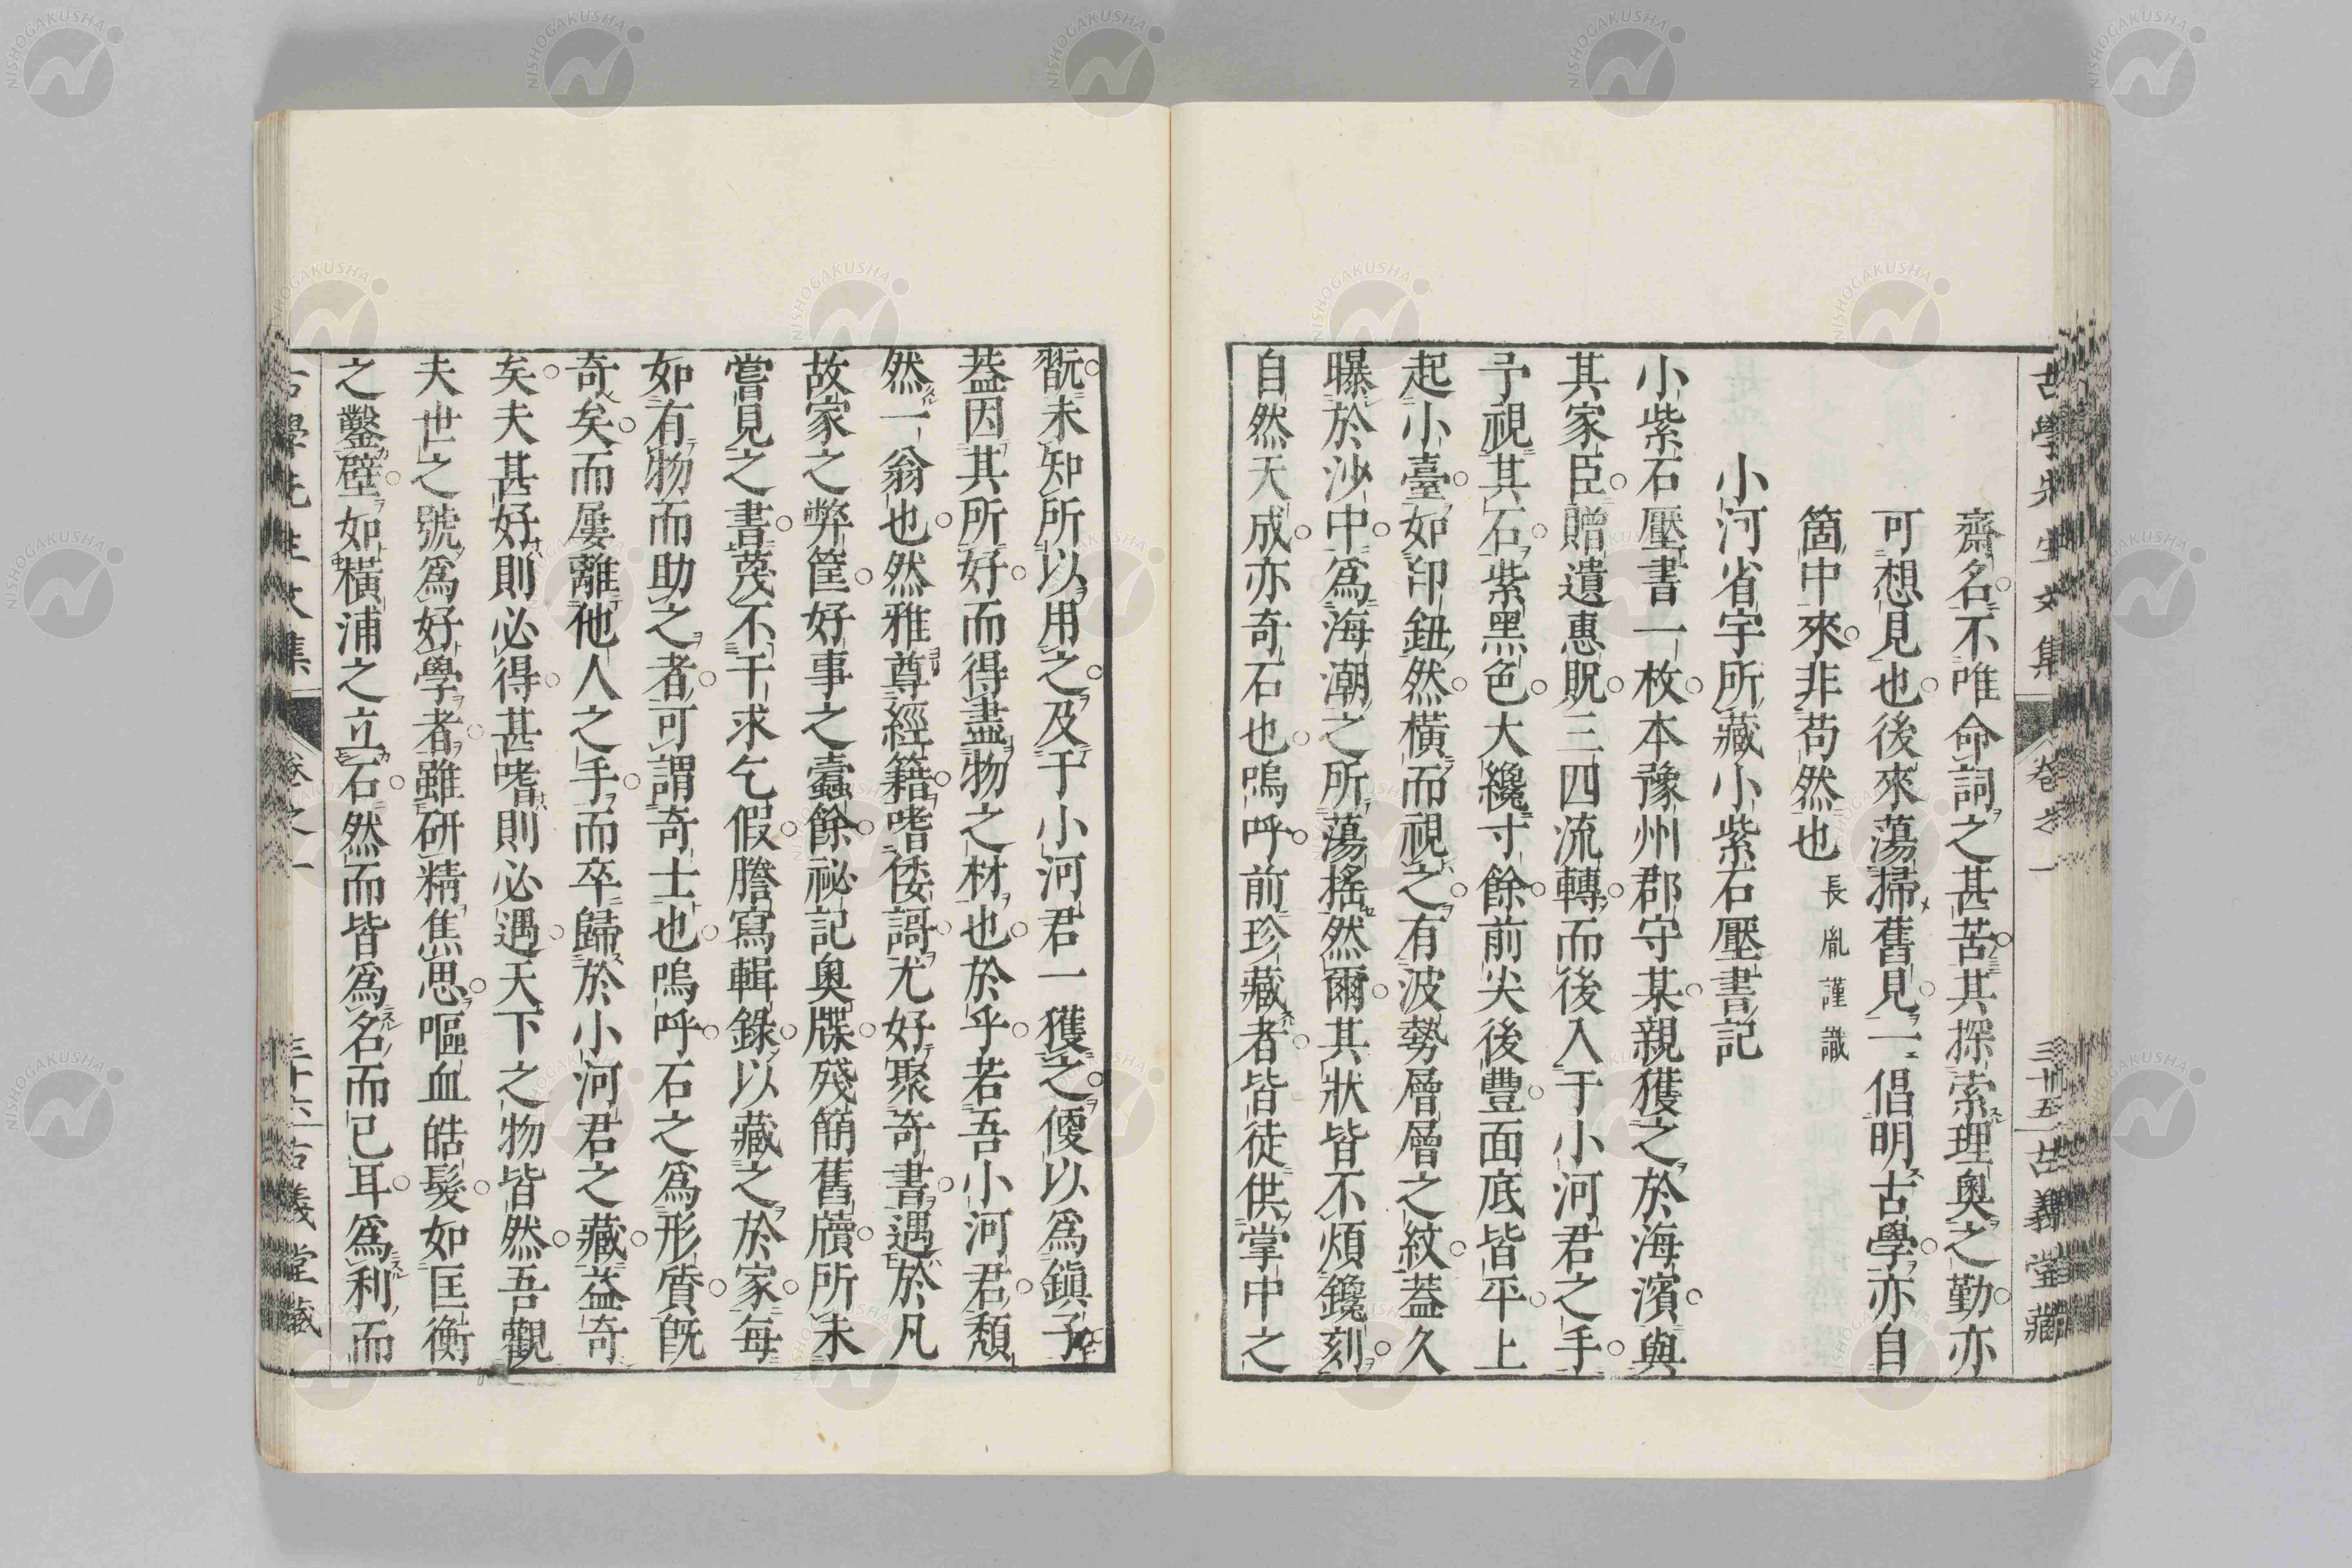 古學先生文集 卷之一 三十五 古義堂藏
齋名不唯命詞之甚苦其探索理奧之勤亦
可想見也後來蕩掃舊見一倡明古學亦自
箇中來非苟然也 長胤謹識
小河省宇所藏小紫石壓書記
小紫石壓書一枚本豫州郡守某親獲之於海濱與
其家臣贈遺惠貺三四流轉而後入于小河君之手
予視其石紫黑色大纔寸餘前尖後豐面底皆平上
起小臺如印鈕然橫而視之有波勢層層之紋蓋久
曝於沙中為海潮之所蕩搖然爾其狀皆不煩鑱刻
自然天成亦奇石也嗚呼前珍藏者皆徒供掌中之
翫未知所以用之及于小河君一獲之便以為鎭子
葢因其所好而得盡物之材也於乎若吾小河君頹
然一翁也然雅尊經籍嗜倭謌尤好聚奇書遇於凡
故家之弊筐好事之蠹餘祕記奧牒殘簡舊牘所未
嘗見之書蔑不干求乞假謄寫輯錄以藏之於家每
如有物而助之者可謂奇士也嗚呼石之為形質既
奇矣而屢離他人之手而卒歸於小河君之藏益奇
矣夫甚好則必得甚嗜則必遇天下之物皆然吾觀
夫世之號為好學者雖研精焦思嘔血皓髮如匡衡
之鑿壁如橫浦之立石然而皆為名而已耳為利而
古學先生文集 卷之一 三十六 古義堂藏